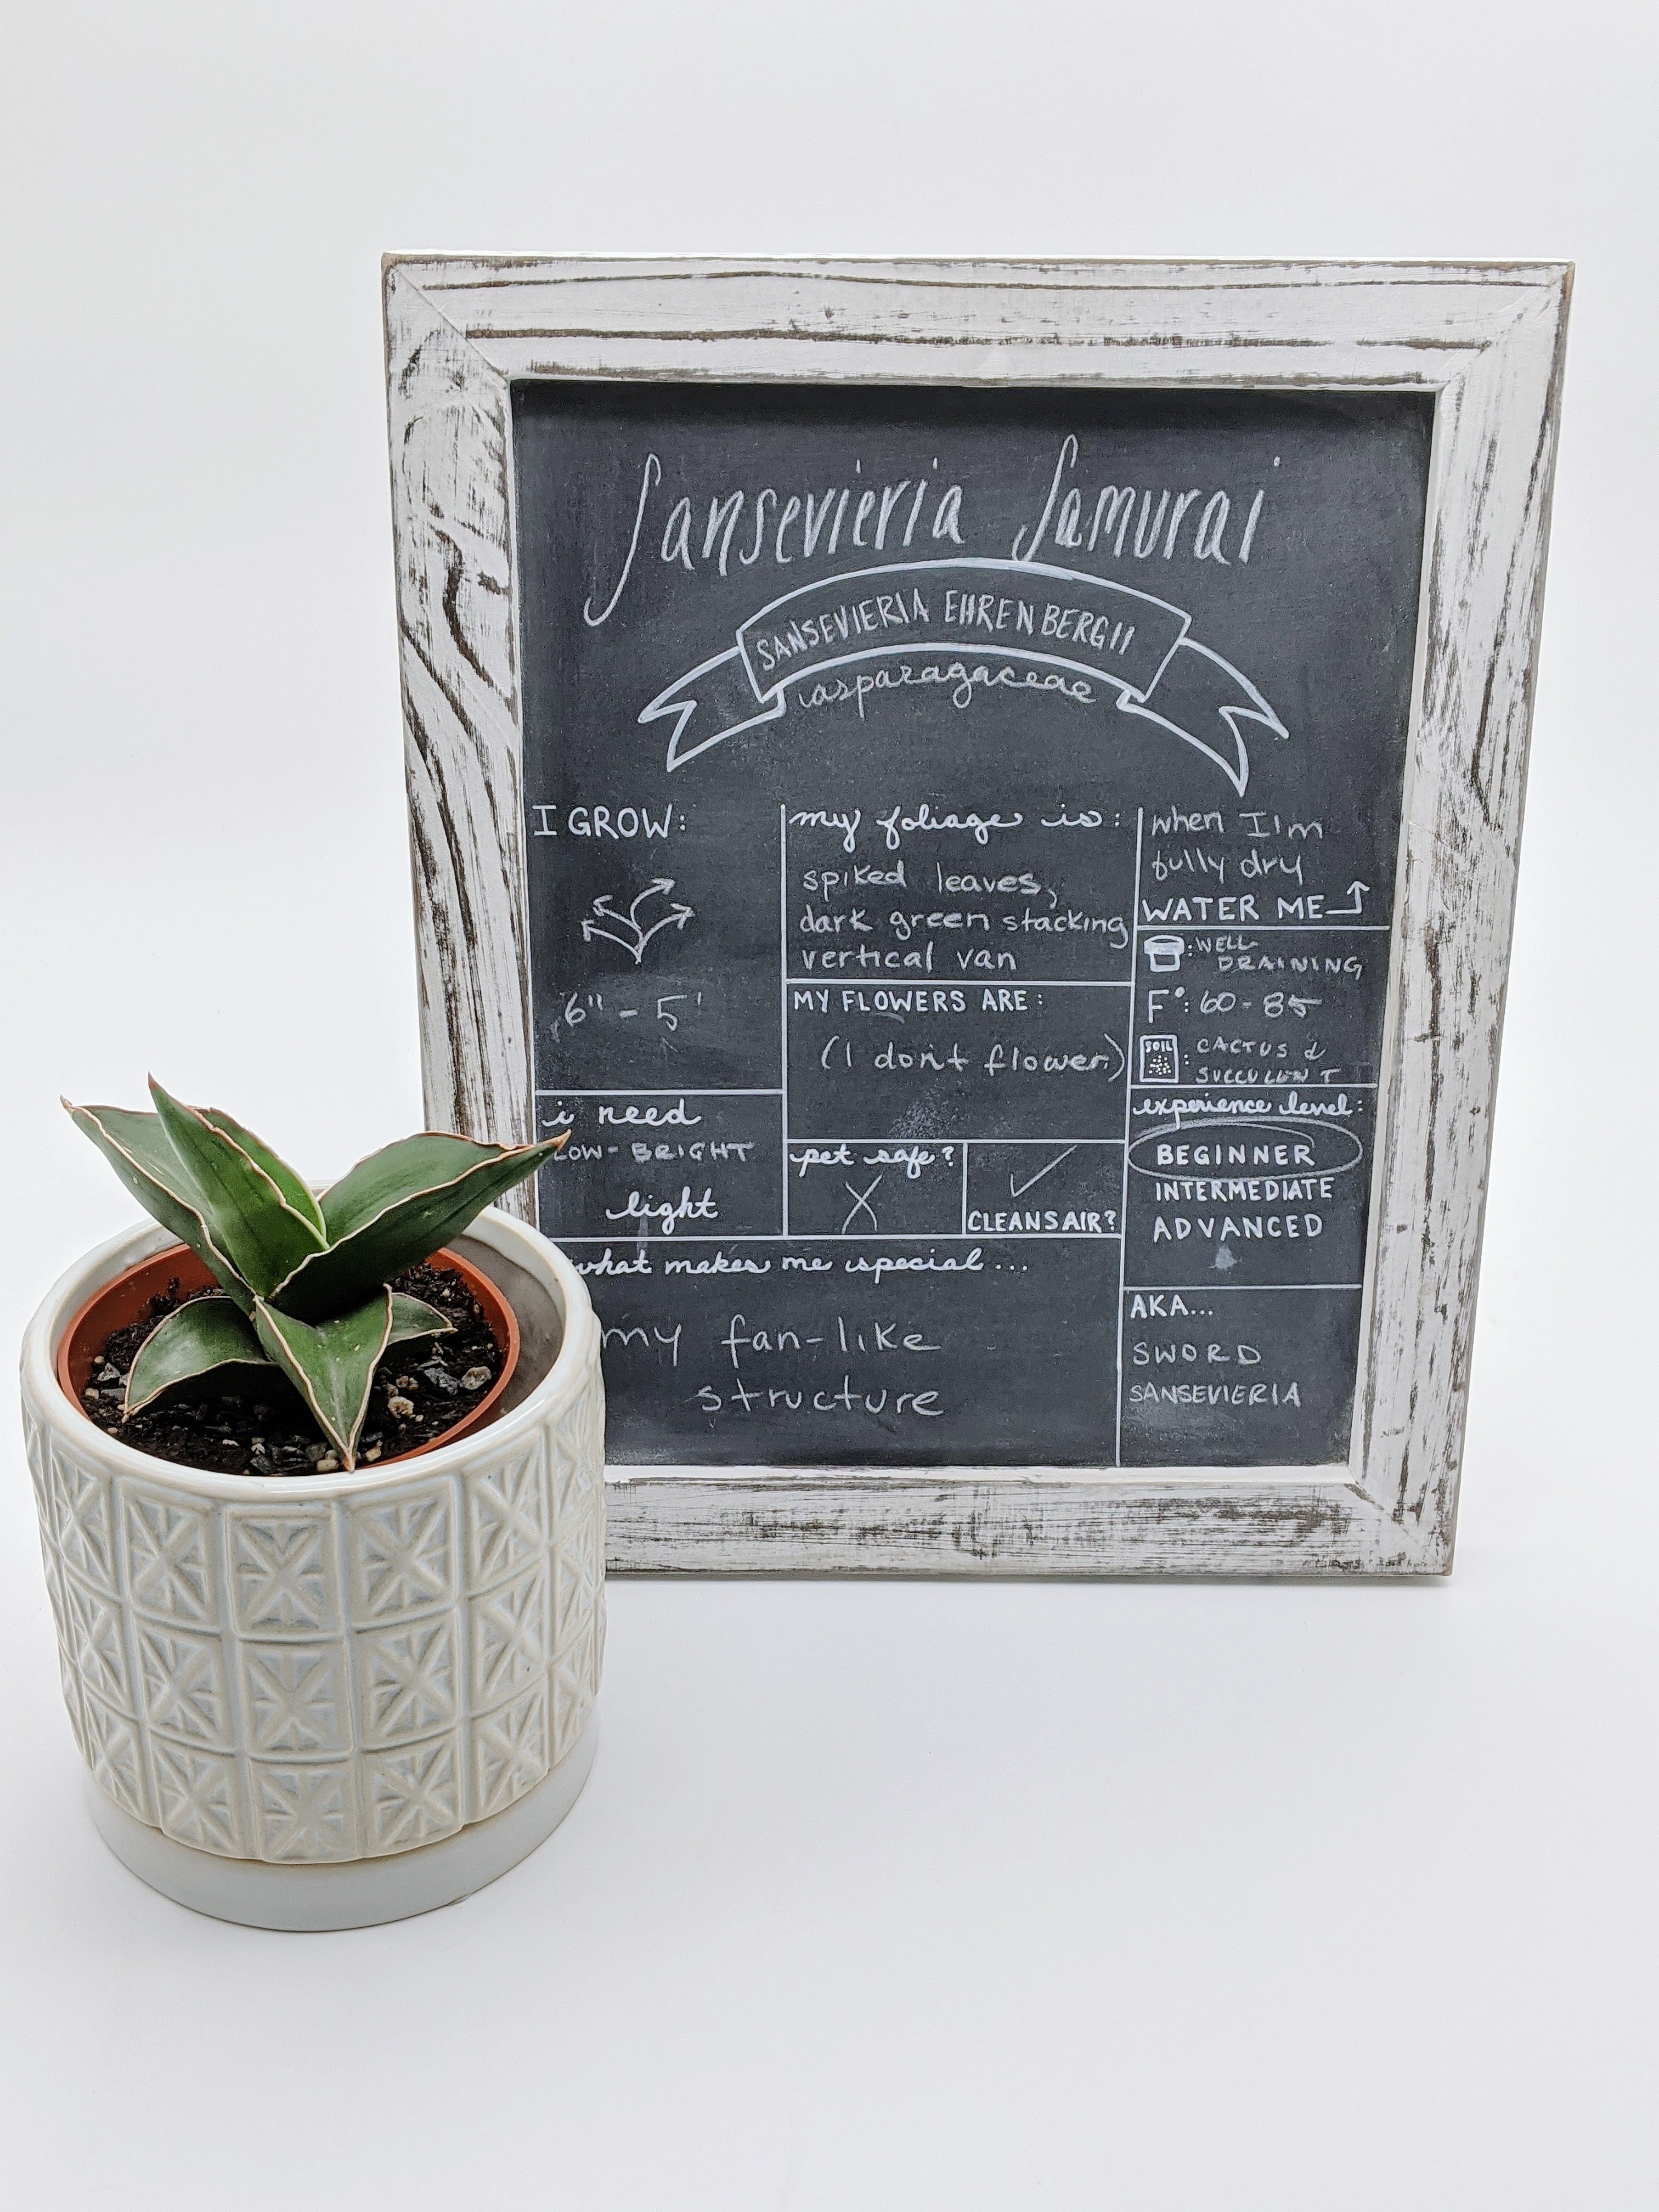 Sansevieria Samurai
SANSEVIERIA EHRENBERGII
asparagaceae
I GROW:
6" - 5'
i need
LOW - BRIGHT
light
my foliage is:
spiked leaves,
dark green stacking
vertical van
MY FLOWERS ARE:
(I don't flower)
pet safe?
X
✓
CLEANS AIR?
what makes me special...
my fan-like
structure
when I'm
fully dry
WATER ME
: WELL
DRAINING
F°: 60 - 85
SOIL
: CACTUS &
SUCCULENT
experience level:
BEGINNER
INTERMEDIATE
ADVANCED
AKA...
SWORD
SANSEVIERIA